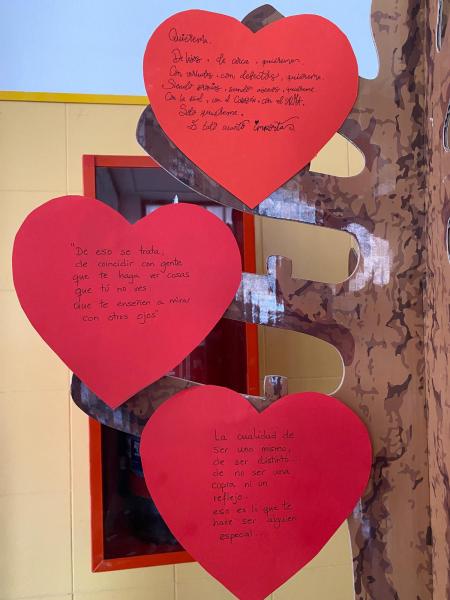 Quiéreme.
De lejos, de cerca, quiéreme.
Con virtudes, con defectos, quiéreme.
Siendo, siendo, quiéreme
Con la piel, con el Corazón, con el ALMA.
Solo quiéreme.
importa
"De eso se trata,
de coincidir con gente
que te haga ver cosas
que tú no ves.
Que te enseñen a mirar
con otros ojos"
La cualidad de
ser uno mismo,
de ser distinto...
de no ser una
copia ni un
reflejo...
eso es lo que te
hace ser alguien
especial...